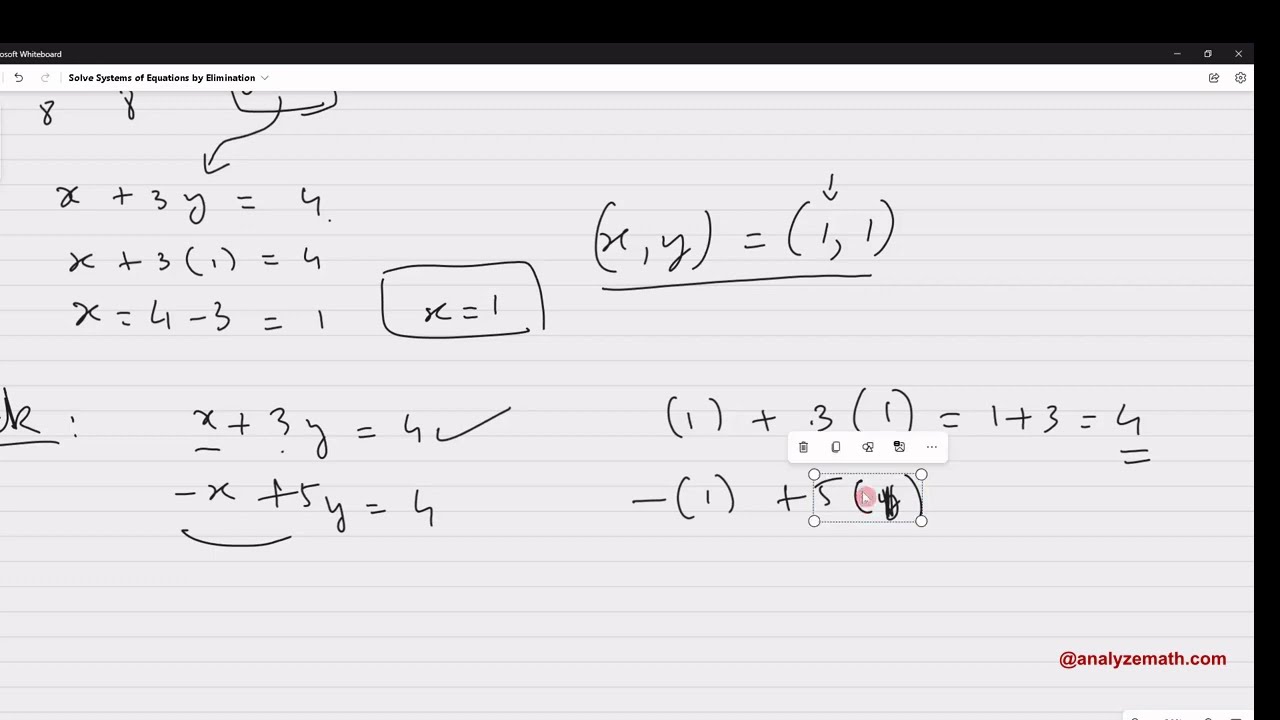 osoft Whiteboard
Solve Systems of Equations by Elimination
8 8
x + 3y = 4.
x + 3(1) = 4
x = 4 - 3 = 1
x = 1
(x, y) = (1, 1)
x + 3y = 4 ✓
(1) + 3(1) = 1 + 3 = 4
-x + 5y = 4
-(1) + 5(
@analyzemath.com